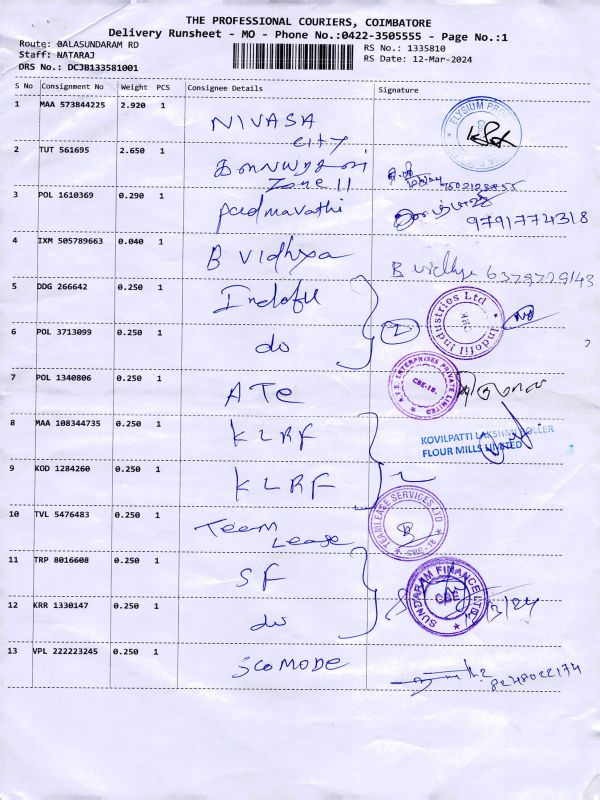 THE PROFESSIONAL COURIERS, COIMBATORE
Delivery Runsheet - MO - Phone No.:0422-3505555 - Page No.:1
Route: BALASUNDARAM RD
Staff: NATARAJ
DRS No.: DCJB133581001
RS No.: 1335810
RS Date: 12-Mar-2024
S No Consignment No Weight PCS Consignee Details Signature
1 MAA 573844225 2.920 1 NIVASA
city
ELYSIUM
2 TUT 561695 2.650 1
Zone 11
3 POL 1610369 0.290 1 padmavathi 9791774318
4 IXM 505789663 0.040 1 B Vidhya B Vidhya 6379729143
5 DDG 266642 0.250 1 Indofil
Indofil Industries Ltd
6 POL 3713099 0.250 1 do 2
7 POL 1340806 0.250 1 ATE
A.T.E. ENTERPRISES PRIVATE LIMITED
CBE-18.
8 MAA 108344735 0.250 1 KLRF
KOVILPATTI LAKSHMI ROLLER
FLOUR MILLS LIMITED
9 KOD 1284260 0.250 1 KLRF 2
10 TVL 5476483 0.250 1 Team
Lease
TEAMLEASE SERVICES LTD
CBE-18
11 TRP 8016608 0.250 1 SF
SUNDARAM FINANCE LTD.
CBE
12 KRR 1330147 0.250 1 do
13 VPL 222223245 0.250 1 SCOMODE
8248022174